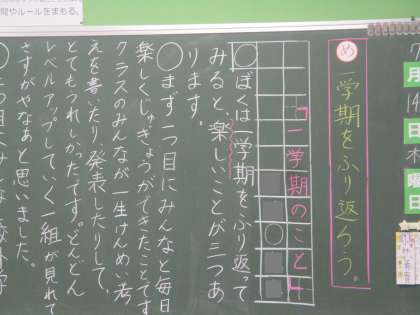 間やルールをまもる。
月
日
曜
日
め 一学期をふり返ろう。
「一学期のこと」
○ぼくは一学期をふり返って
みると、楽しいことが三つあ
ります。
○まず一つ目にみんなと毎日
楽しくじゅぎょうができたことです。
クラスのみんなが一生けんめい考
えを書いたり、発表したりして、
とてもうれしかったです。どんどん
レベルアップしていく一組が見れて
さすがやなあと思いました。